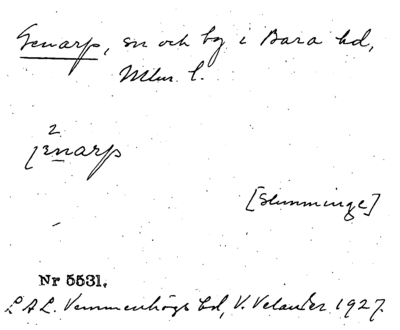 Genarp, sn och by i Bara hd,
Mlm l.
2
jenarp
[Slimminge]
Nr 5531.
L A L. Vemmenhögs hd, V. Velander 1927.